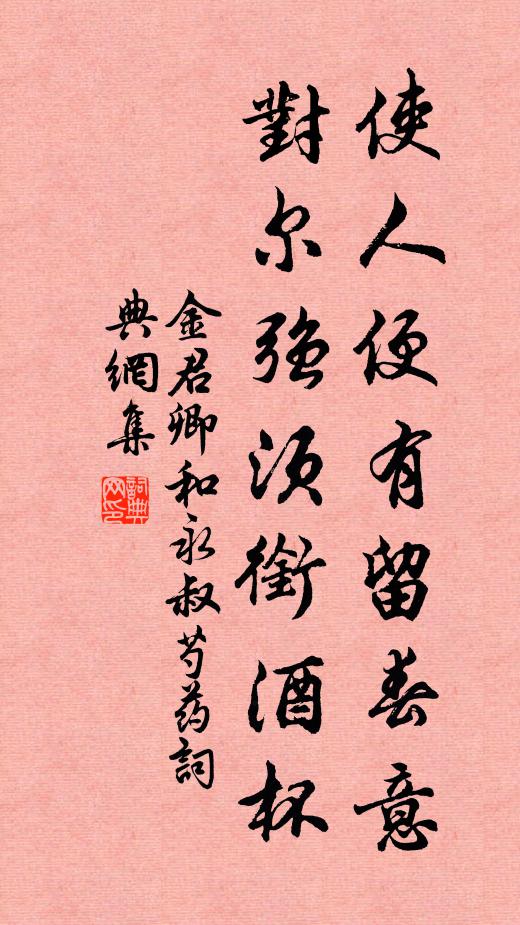 使人便有留春意
對尔強須銜酒杯
金君卿和永叔芍药詞
典網集
詞典网印